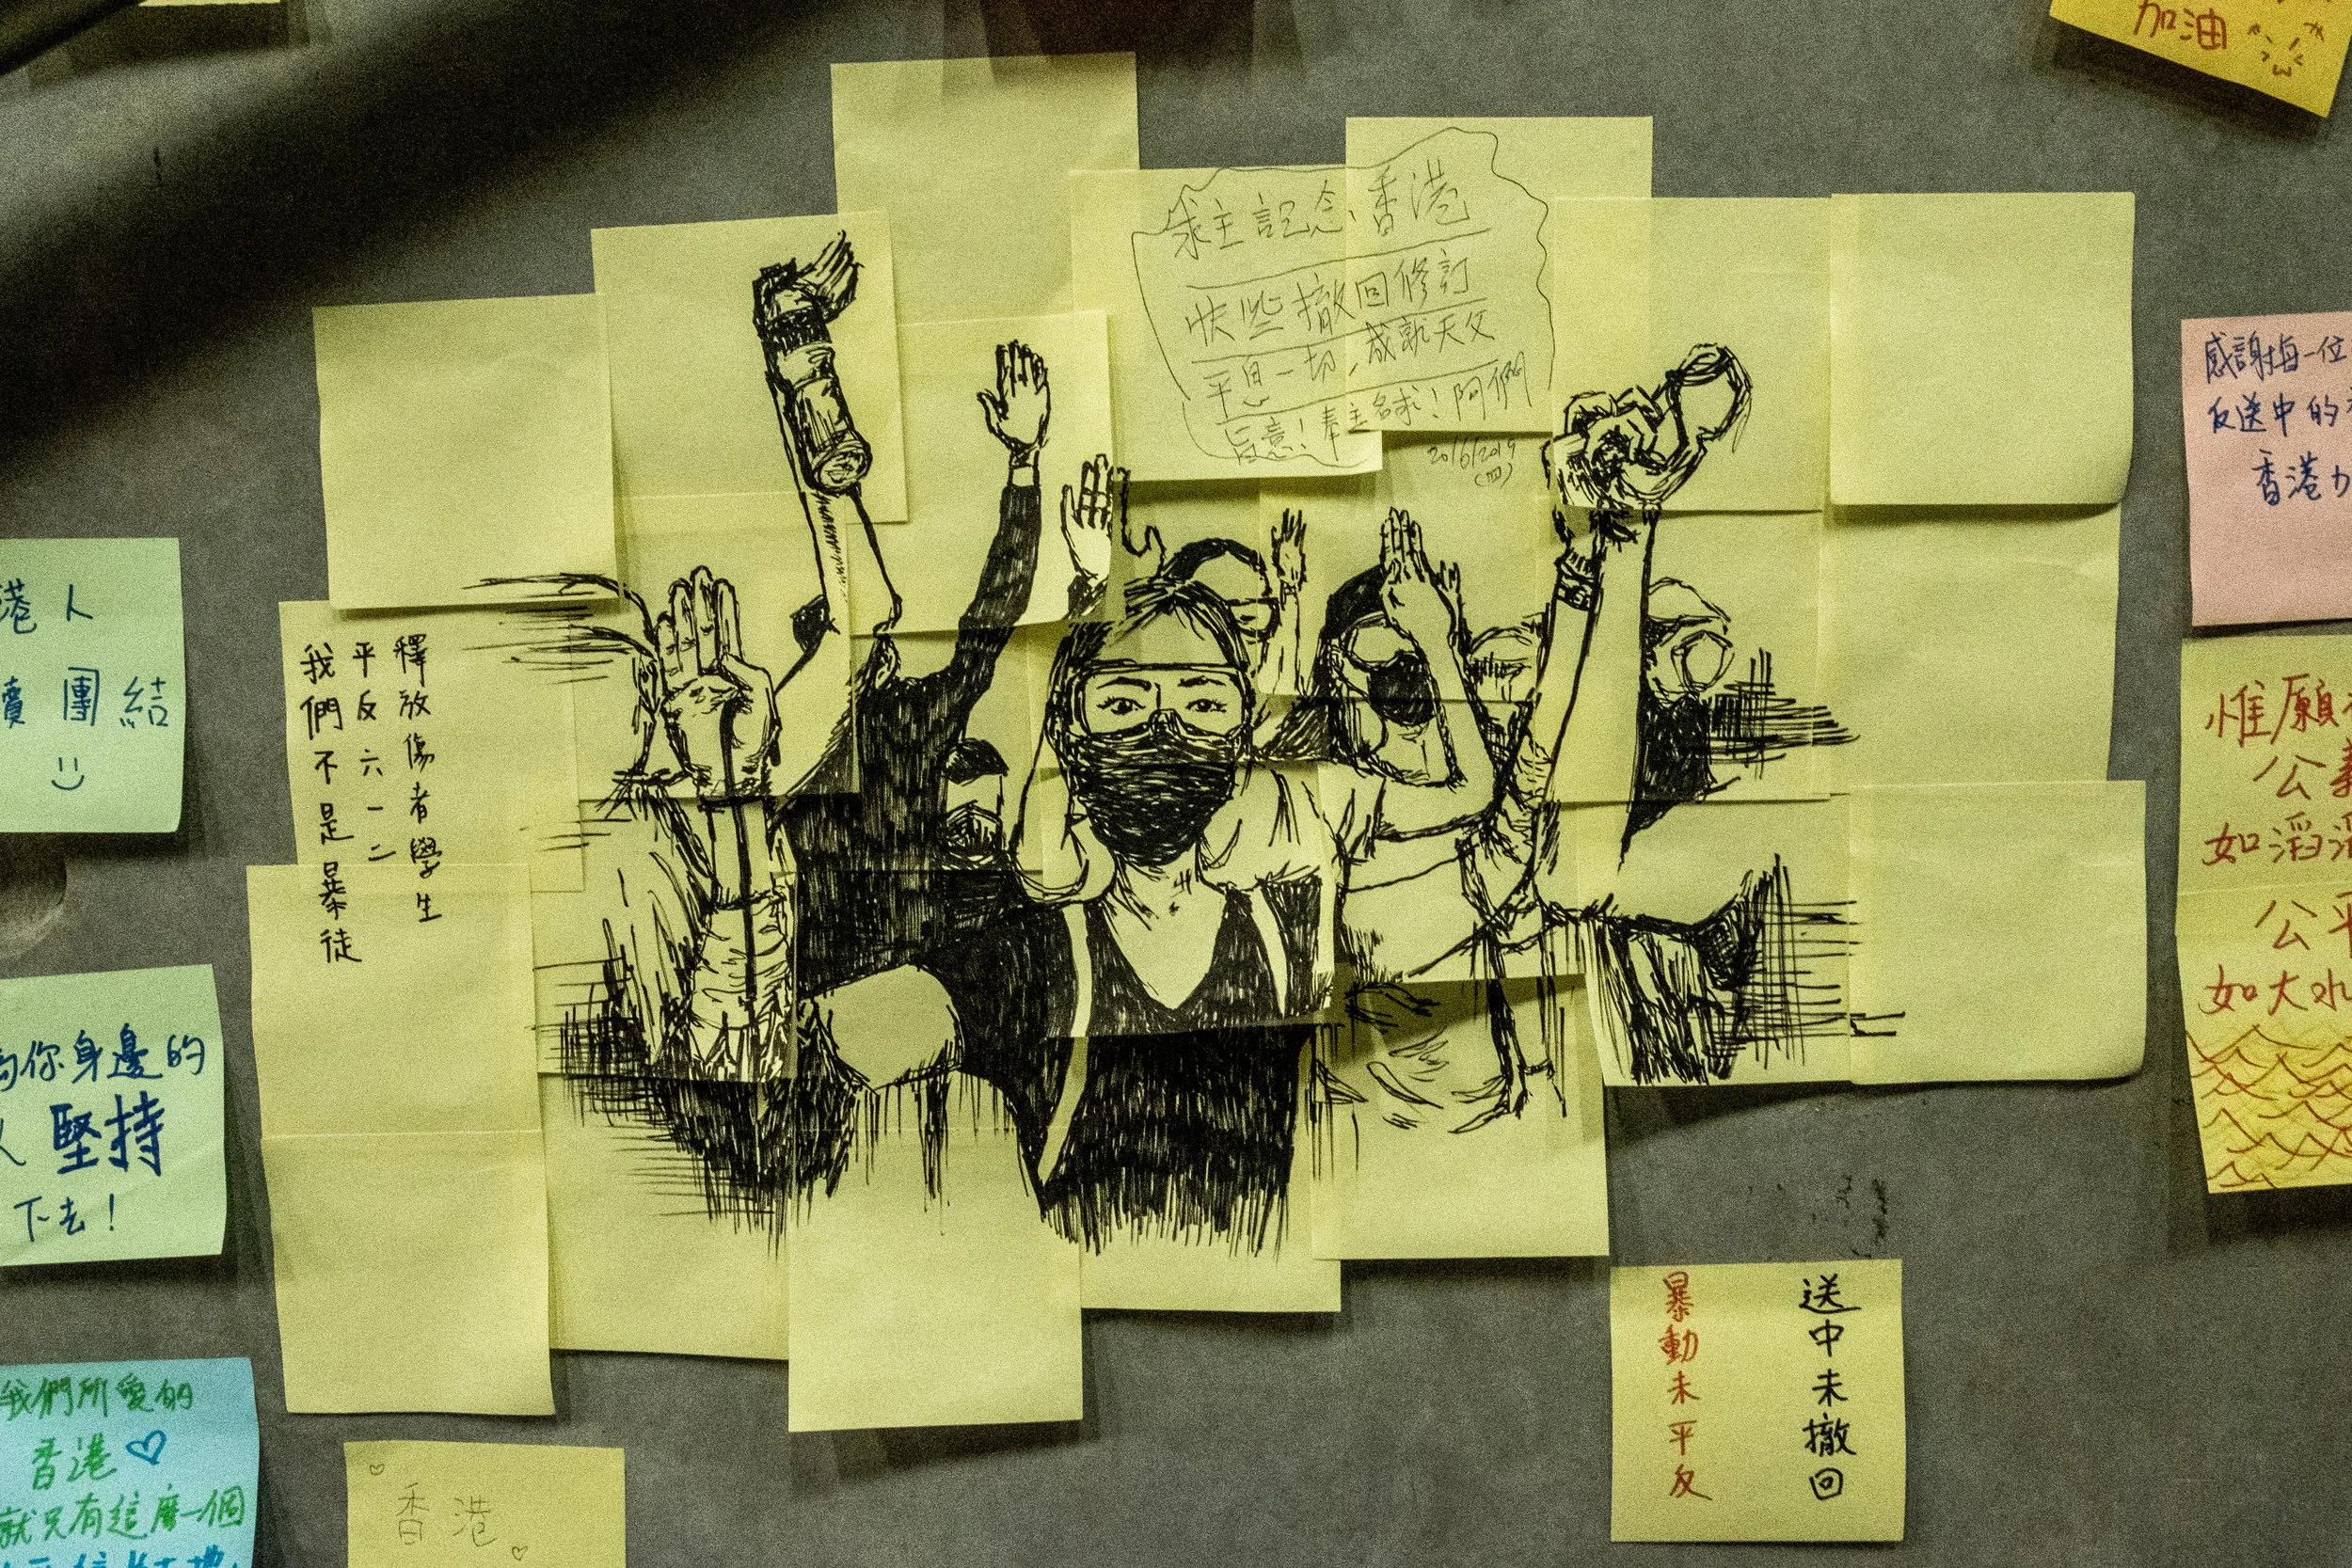 加油
求主記念香港
快些撤回修訂
平息一切，成就天父
旨意！奉主名求！阿們
20/6/2019
(四)
釋放傷者學生
平反六一二
我們不是暴徒
港人
團結
你身邊的
堅持
下去！
我們所愛的
香港♡
就只有這麼一個
香港
感謝每一位
反送中的
香港
惟願
公
如滔
公平
如大水
送中未撤回
暴動未平反